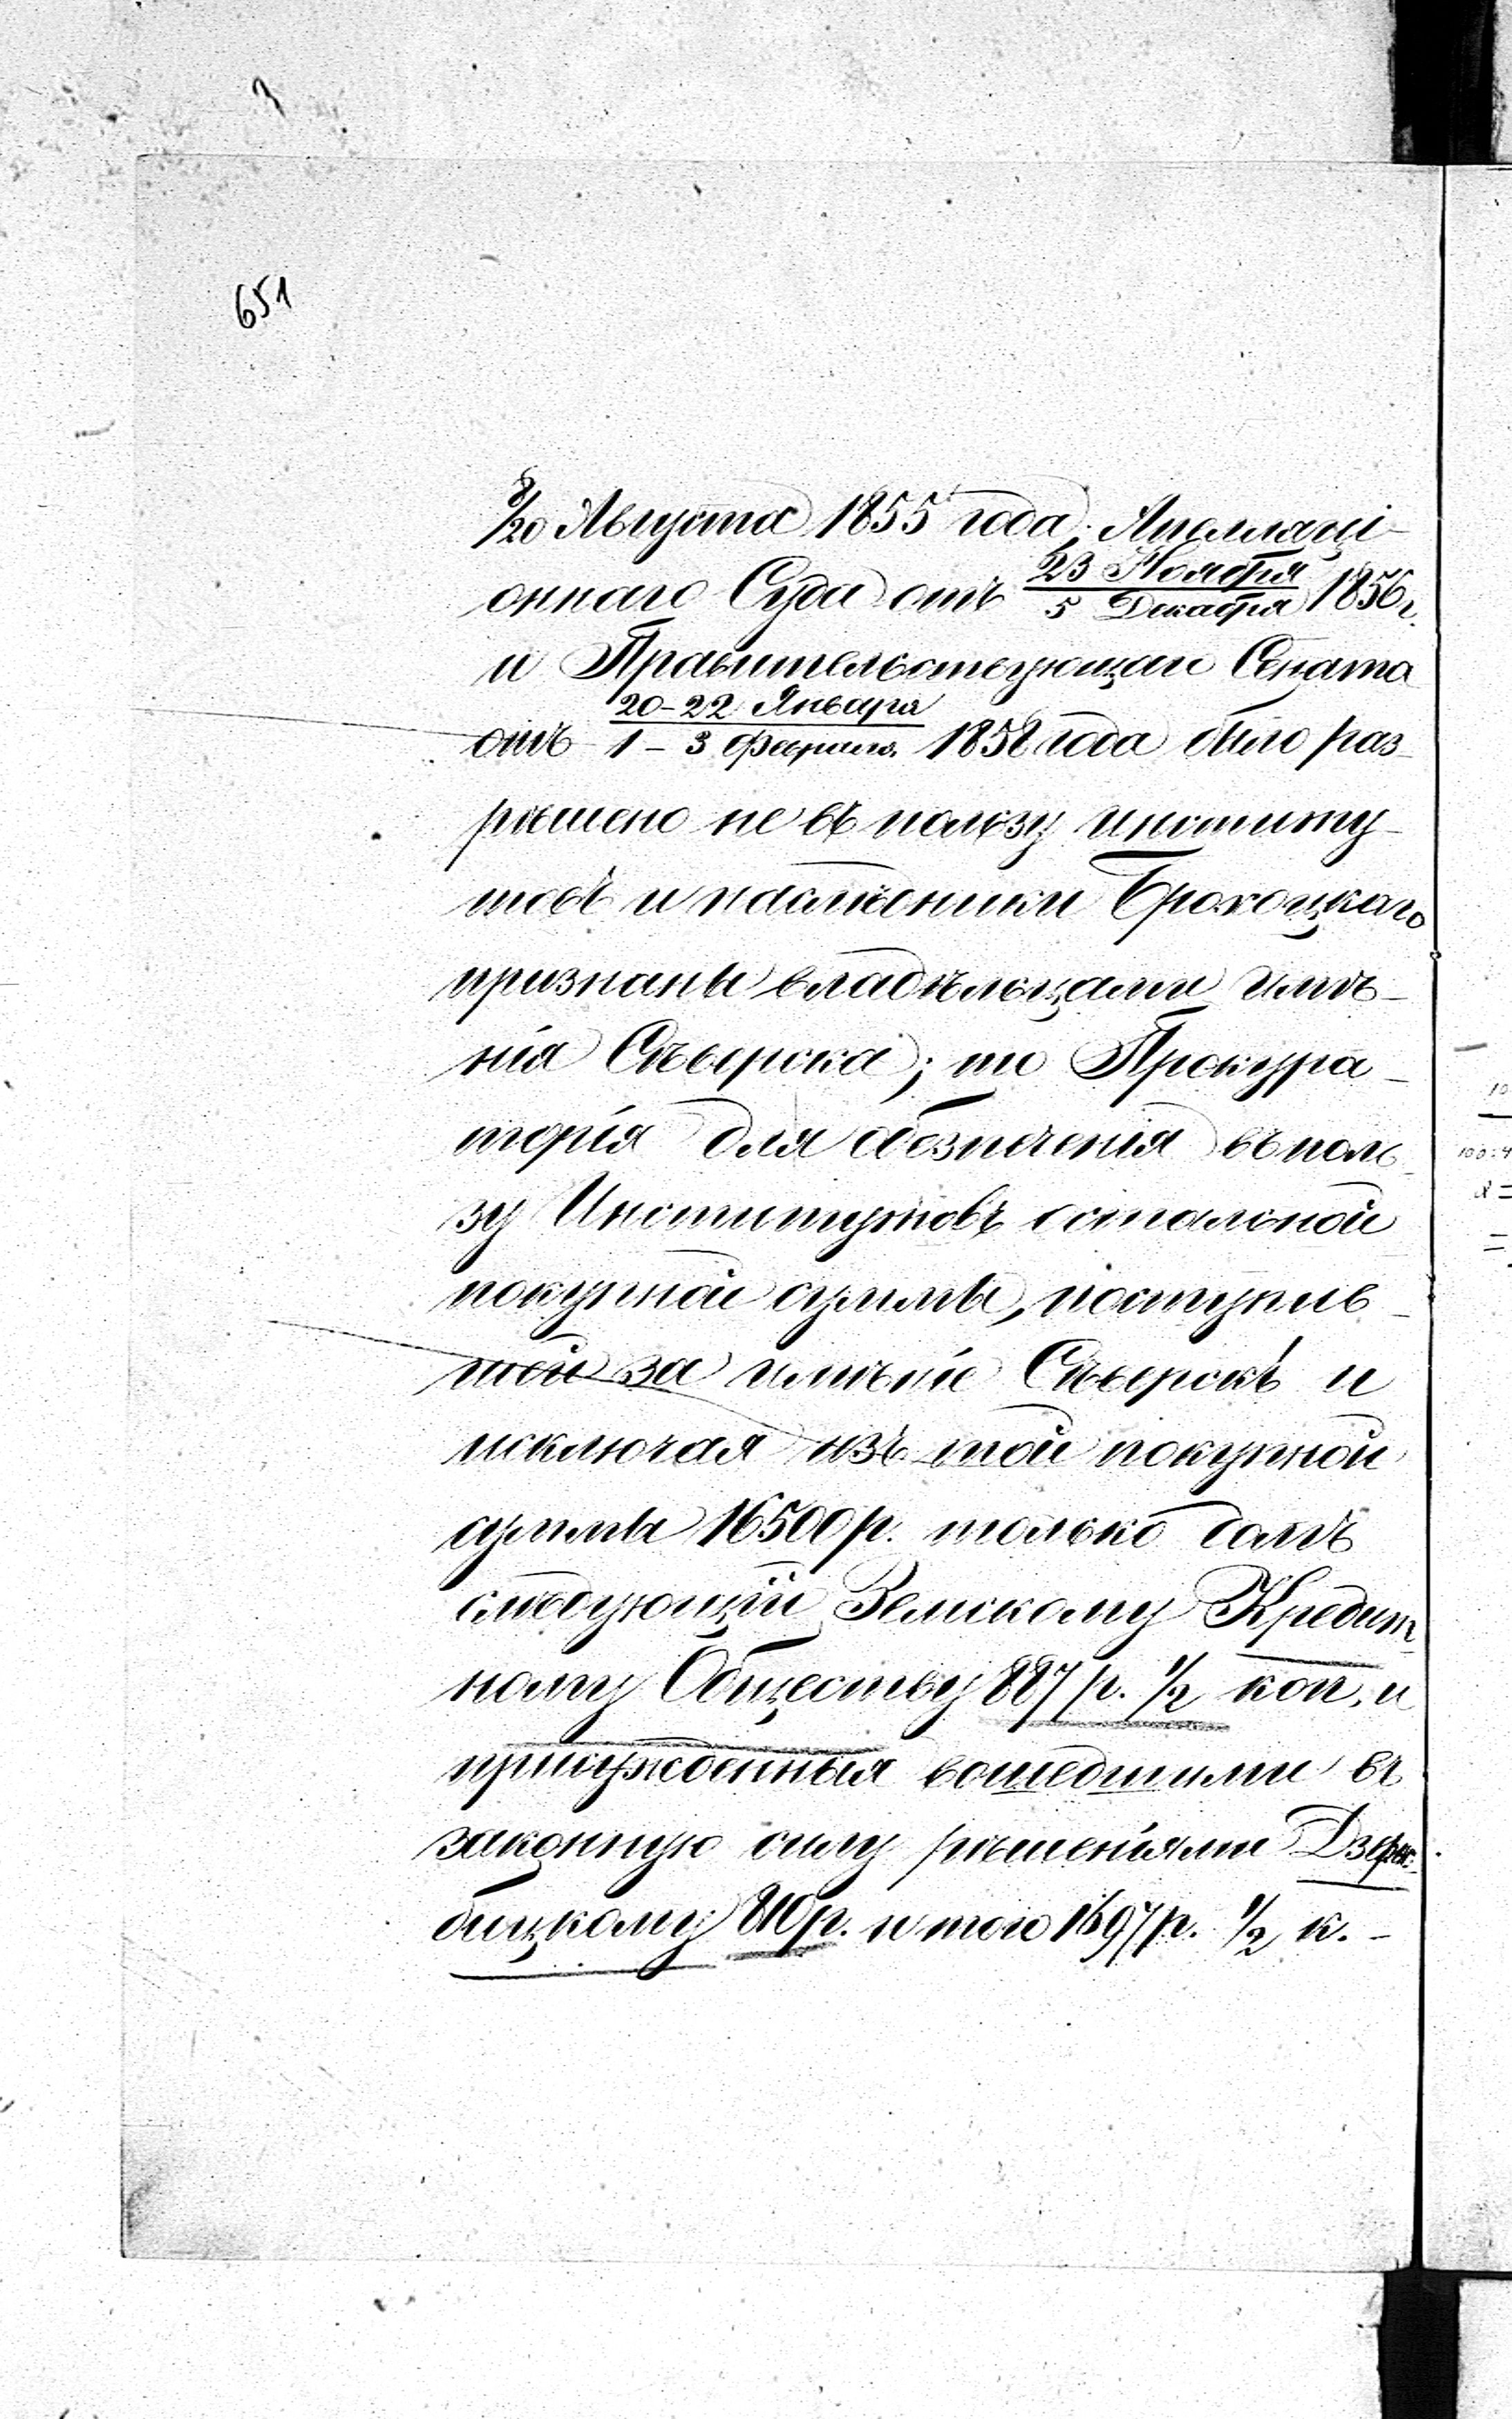 651
8/20 Августа 1855 года. Апелляці-
оннаго Суда отъ 23 Ноября / 5 Декабря 1856 г.
и Правительствующаго Сената
отъ 20-22 Января / 1-3 Февраля. 1858 года было раз-
рѣшено не въ пользу институ-
товъ и наслѣдники Брохоцкаго
признаны владѣльцами имѣ-
нія Сѣверска; то Прокура-
торія для обезпеченія въ поль-
зу Институтовъ остальной
покупной суммы, поступив-
шей за имѣніе Сѣверскъ и
исключая изъ той покупной
суммы 16500 р. только долгъ
слѣдующій Земскому Кредит-
ному Обществу 887 р. 1/2 коп. и
присужденныя вошедшими въ
законную силу рѣшеніями
бицкому 810 р. итого 1697 р. 1/2 к. -